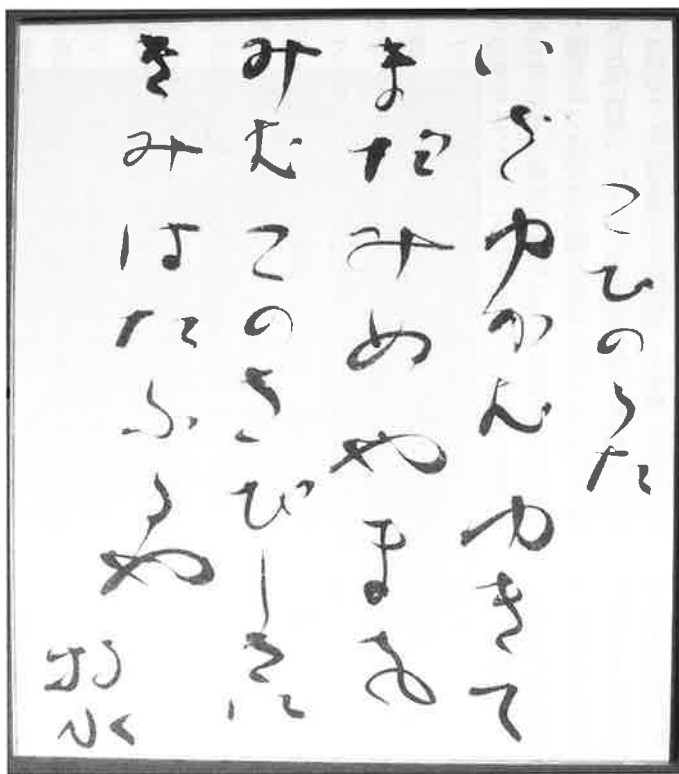 こひのうた
いざゆかむゆきて
まだみぬやまを
みむこのさびしさに
きみはたふるや
牧水